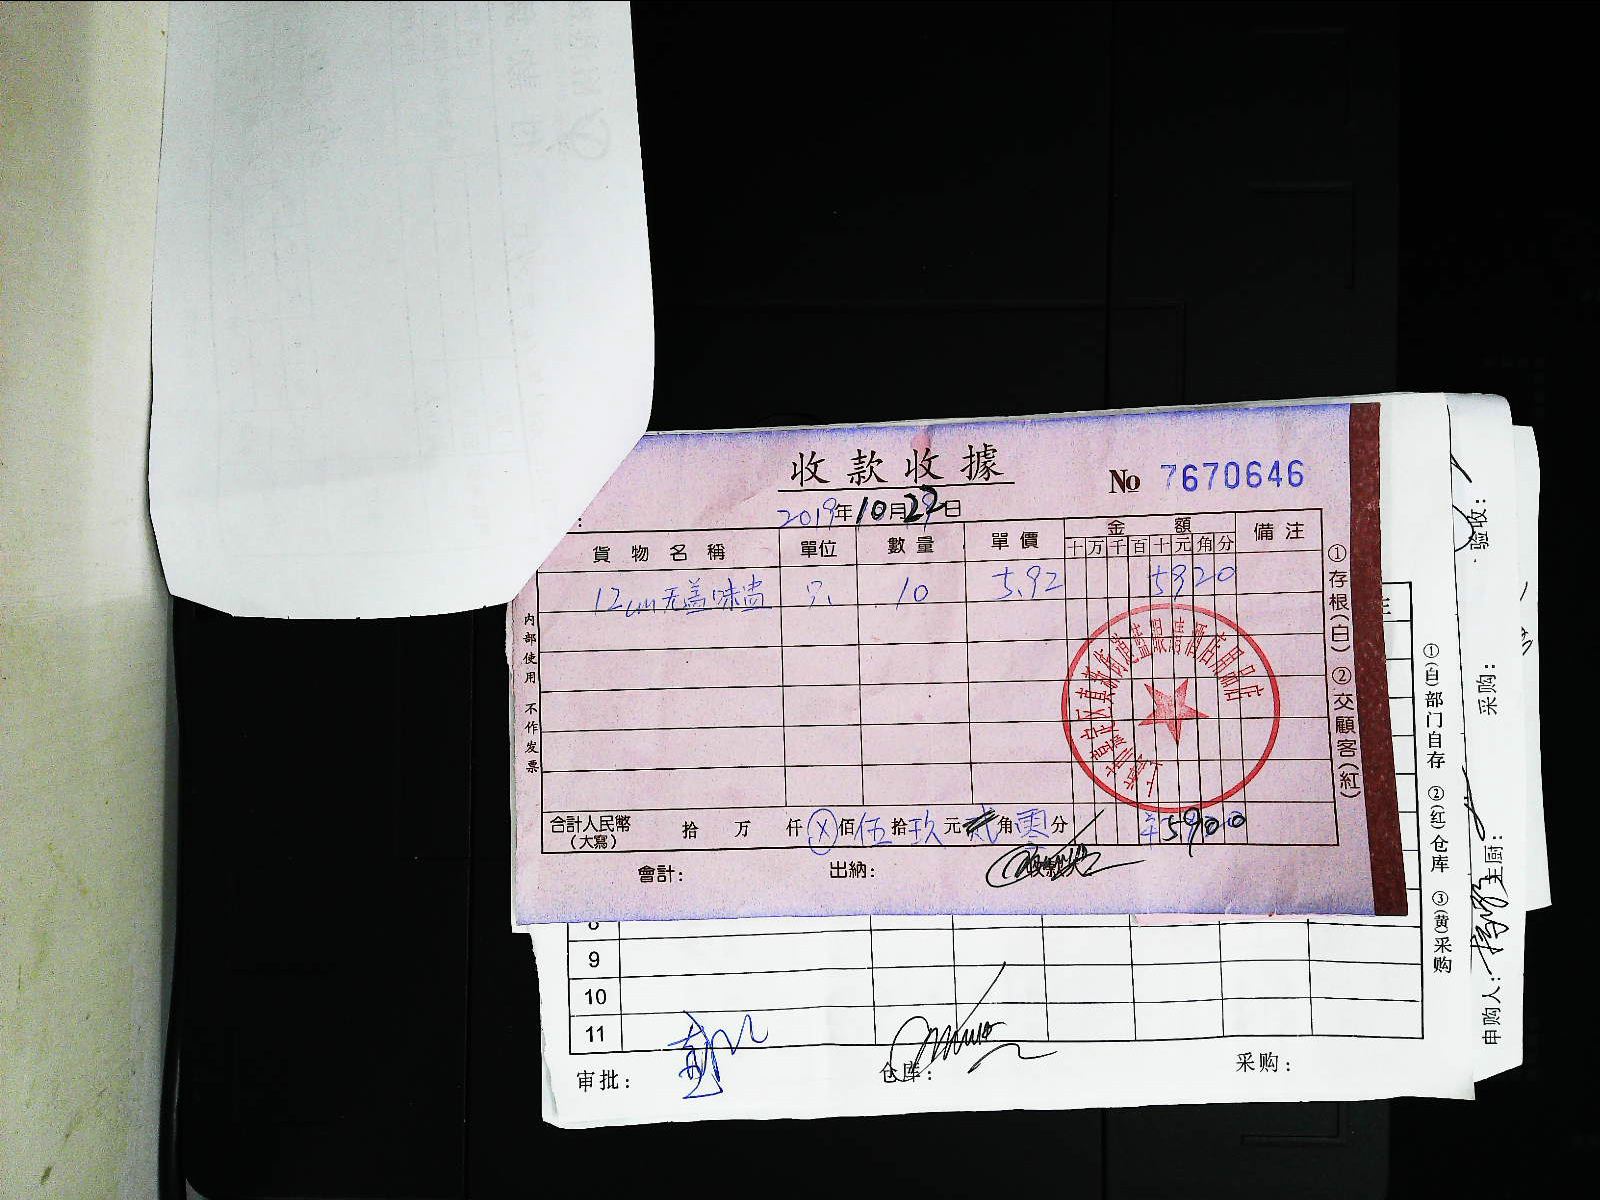 收款收據
No 7670646
2019年10月22日
貨物名稱 單位 數量 單價 金額 備注
十 万 千 百 十 元 角 分
12cm无盖味盅 只 10 5.92 5920
合計人民幣 拾 万 仟 ⊗ 佰 伍 拾 玖 元 角 零 分 ¥5900
(大寫)
會計: 出納: 收款人
内部使用 不作发票
①存根(白) ②交顧客(紅)
9
10
11
审批: 仓库: 采购:
①(白)部门自存 ②(红)仓库 ③(黄)采购
申购人: 主厨: 采购: 验收: